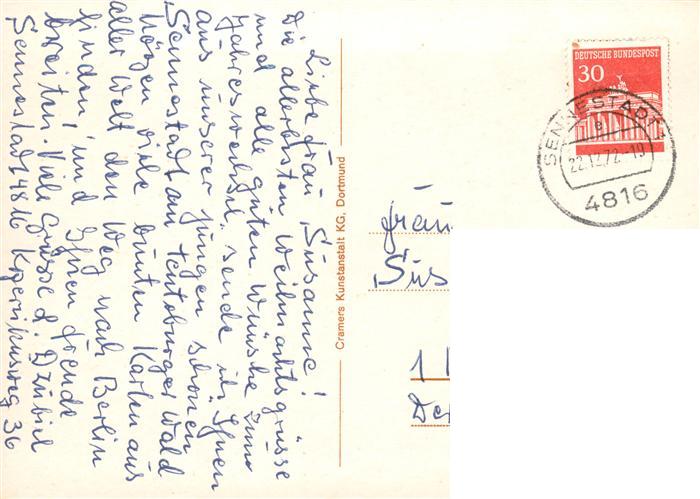 Liebe Frau Susanne!
Die allerbesten Weihnachtsgrüsse
und alle guten Wünsche zum
Jahreswechsel, sende ich Ihnen
aus unserer jungen schönen
Sennestadt am Teutoburger Wald
Mögen viele bunten Karten aus
aller Welt den Weg nach Berlin
finden und Ihnen Freude
breiten. Viele Grüsse d.
Sennestadt 4816 36
Cramers Kunstanstalt KG, Dortmund
DEUTSCHE BUNDESPOST
30
SENNESTADT
e
22.12.72-19
4816
Frau
Sus
1